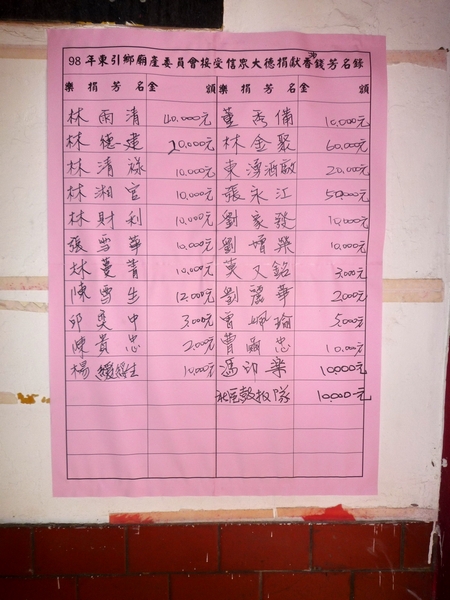 98年東引鄉廟產委員會接受信眾大德捐獻香油錢芳名錄
樂捐芳名 金額 樂捐芳名 金額
林雨清 40,000元 董秀備 10,000元
林德建 20,000元 林金聚 60,000元
林清祿 10,000元 東湧酒廠 20,000元
林湘官 10,000元 張永江 50,000元
林財利 10,000元 劉家發 10,000元
張雪華 10,000元 劉增 10,000元
林蔓菁 10,000元 莫又銘 3,000元
陳雪生 12,000元 劉麗華 2,000元
邱奕中 3,000元 曹珮瑜 5,000元
陳貴忠 2,000元 曹忠 10,000元
楊綏生 10,000元 馮印樂 10,000元
社區鼓板隊 10,000元